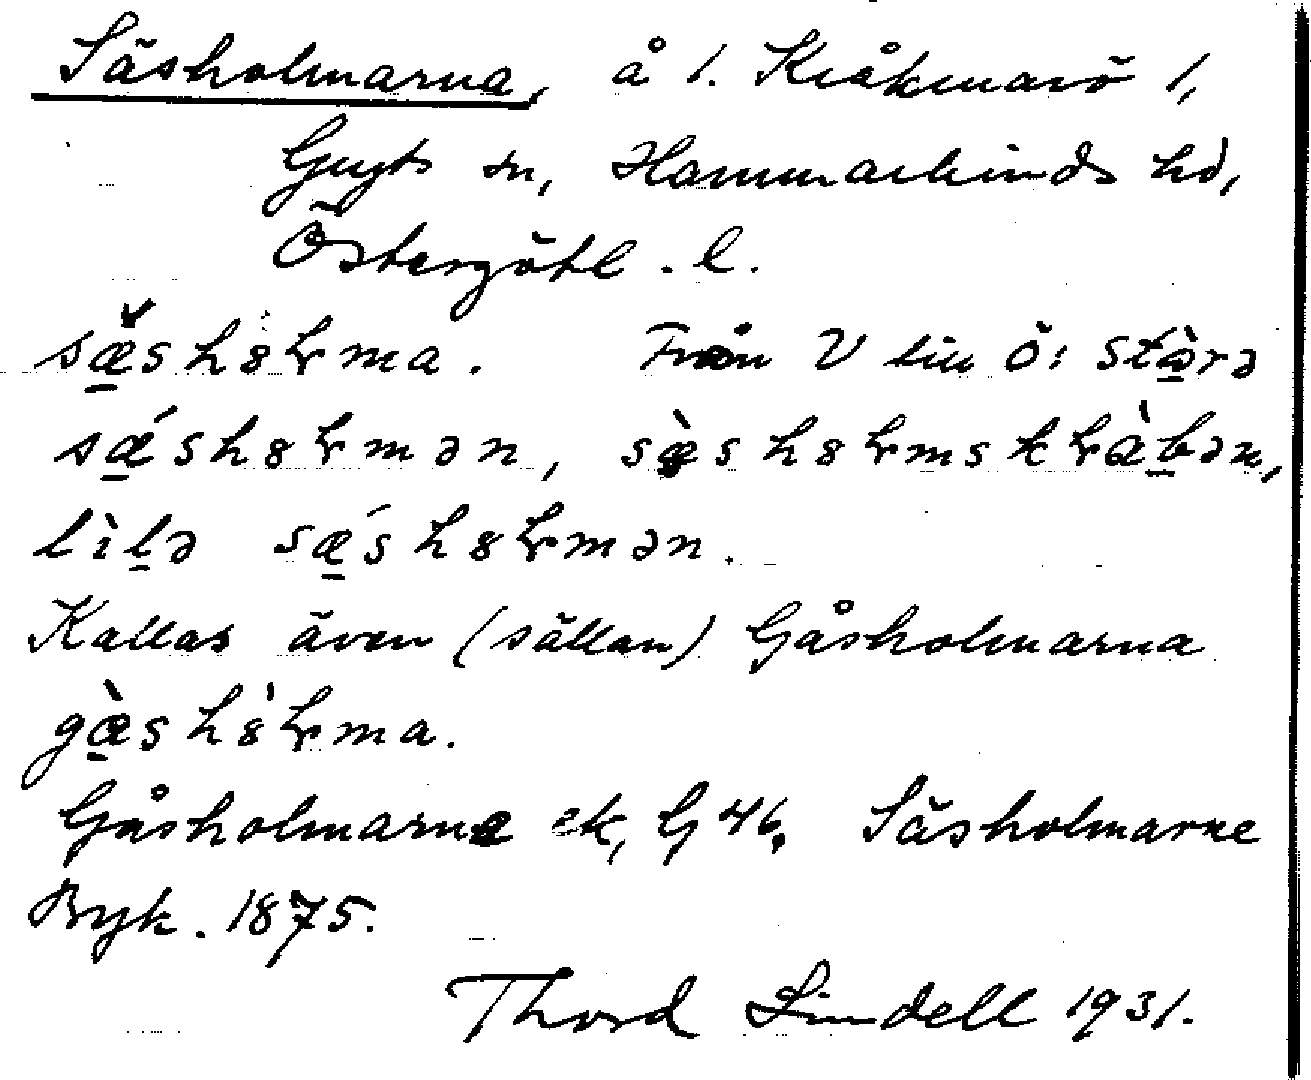 Säsholmarna, å 1. Kråkmarö 1,
Gryts sn, Hammarkinds hd,
Östergötl. l.
sæ̌sh8ɽma. Från V till Ö: stòrə
sǽsh8ɽmən, sæ̀sh8ɽmskɽàbən,
lìlə sǽsh8ɽmən.
Kallas även (sällan) Gåsholmarna
gàsh8̀ɽma.
Gåsholmarne ek, G 46. Säsholmarne
Ryk. 1875.
Thord Lindell 1931.